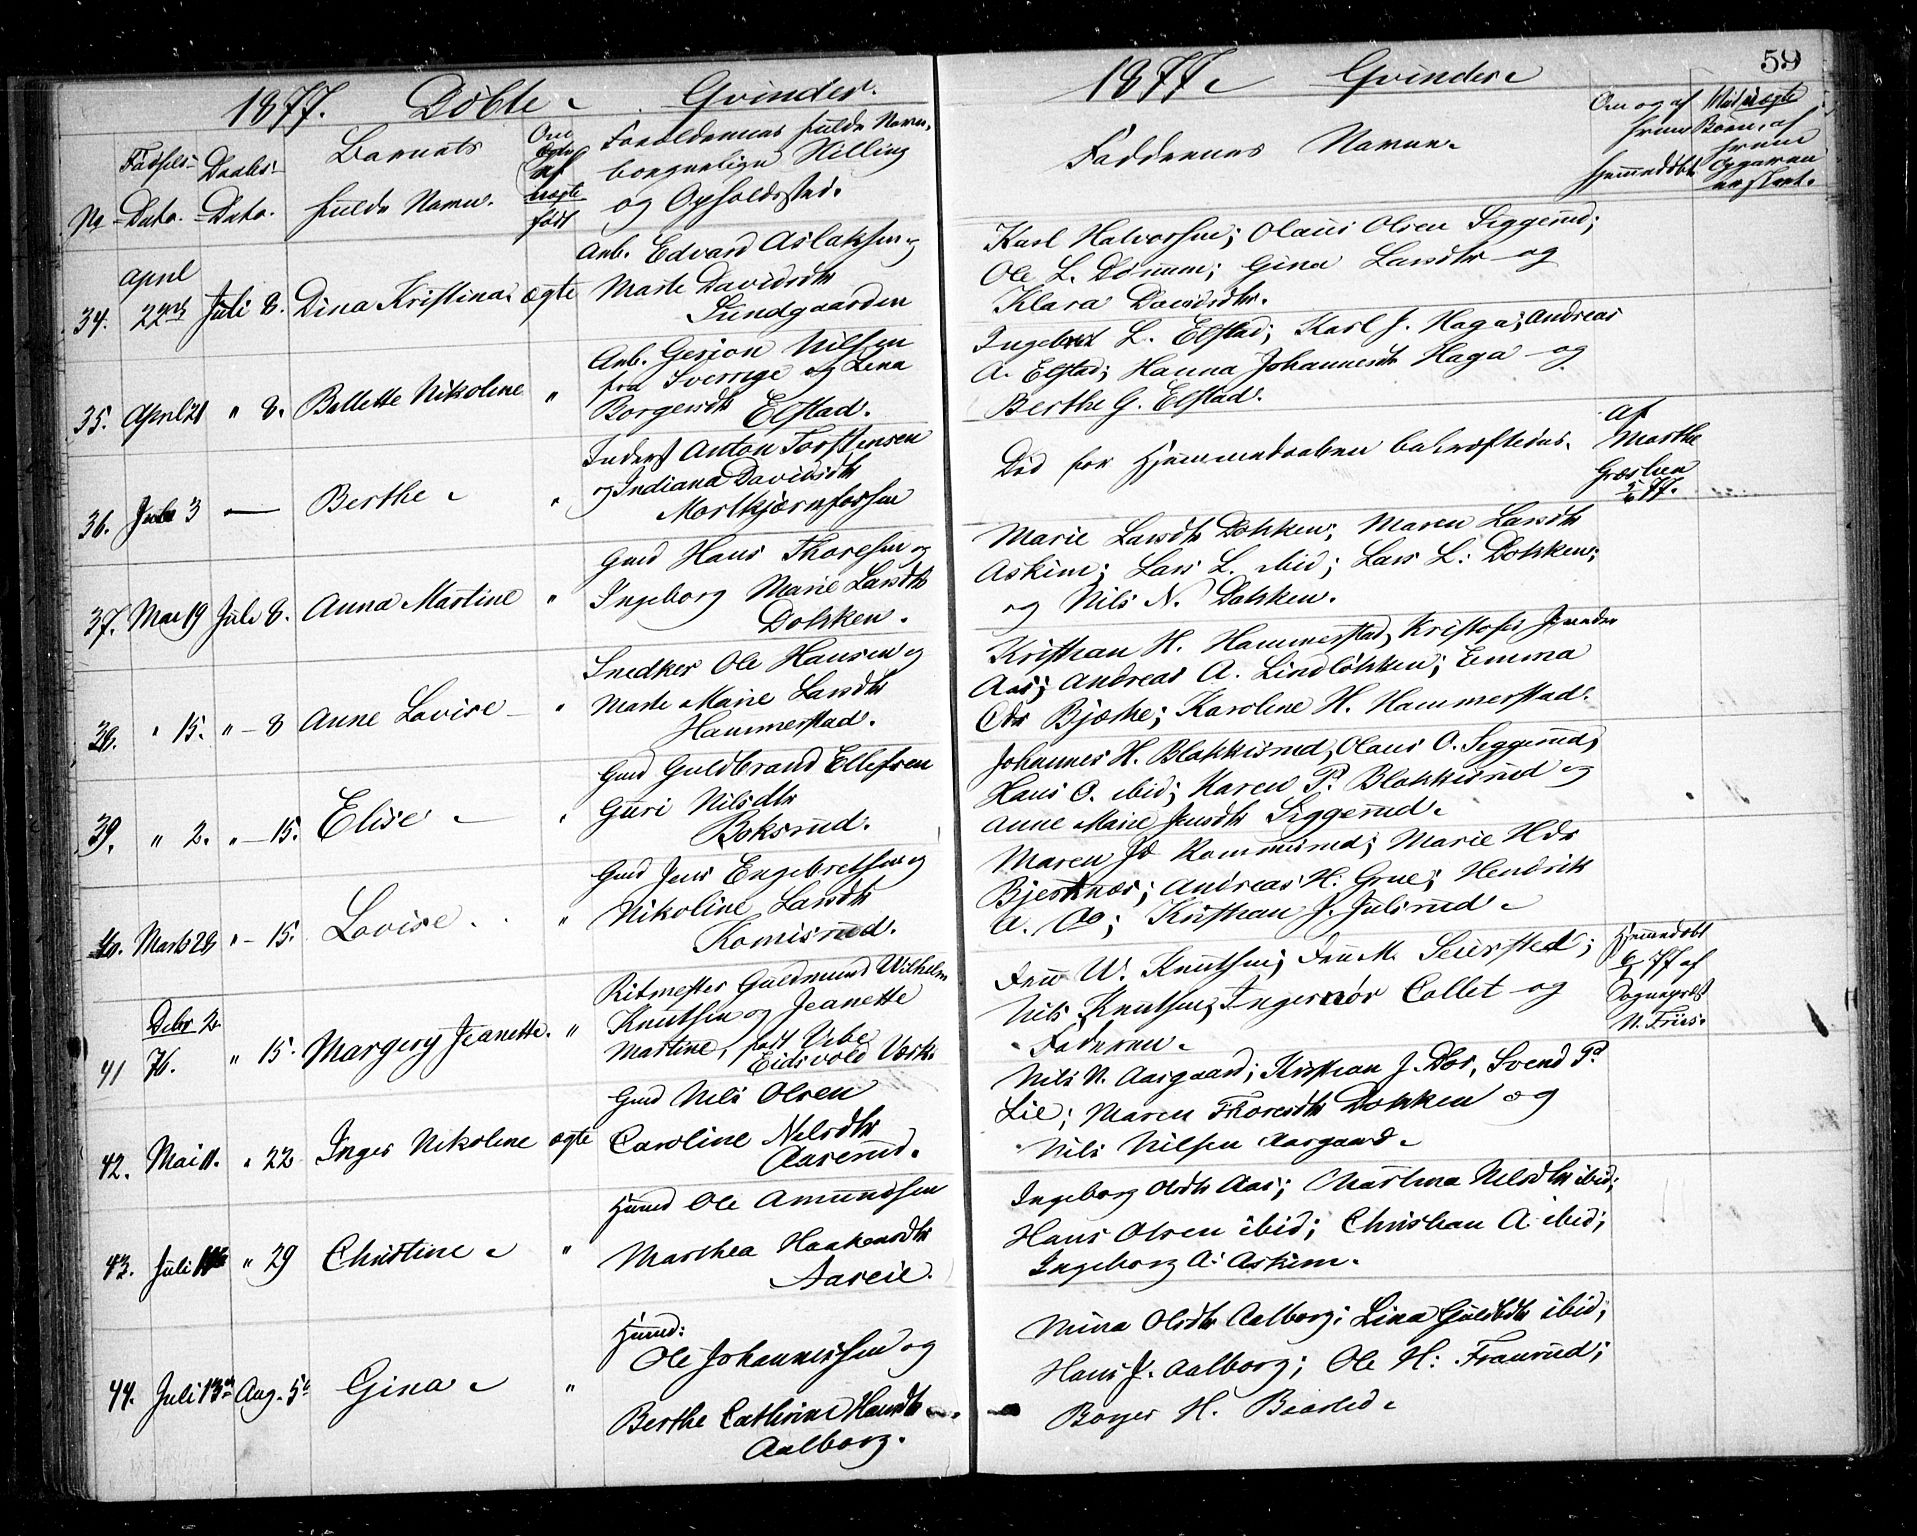 1877. Döbte Qvinder.
1877 Qvinder
59
No
Fødsels-Dato.
Daabs-Dato.
Barnets fulde Navn.
Om ægte eller uægte født
Forældrenes fulde Navn, borgerlige Stilling og Opholdssted.
Faddernes Navne.
Om og af hvem hjemmedøbt
34. april 22 Juli 8. Dina Kristina. ægte
Arb. Edvard Aslaksen og
Marte Davidsdtr
Sundgaarden
Karl Halvorsen; Olaus Olsen Siggerud;
Ole L. Dømum; Gina Larsdtr og
Klara Davidsdtr.
35. April 21 " 8. Bollette Nikoline "
Arb. Gerion Nilsen
fra Sverrige og Lena
Borgersdtr Elstad.
Ingebret L. Elstad; Karl J. Haga; Andreas
A. Elstad; Hanna Johannesdtr Haga og
Berthe G. Elstad.
36. 3 — Berthe "
Inderst Anton Torstensen
og Indiana Davidsdtr
Mortkjærnfossen
Død før Hjemmedaaben bekræftedes.
af Marthe
Græslien
77.
37. Mai 19 Juli 8. Anna Martine "
Gmd Hans Thoresen og
Ingeborg Marie Larsdtr
Dokken.
Marie Larsdtr Dokken; Maren Larsdtr
Askim; Lars L. ibid; Lars L. Dokken;
og Nils N. Dokken.
38. " 15. " 8 Anne Lovise "
Snedker Ole Hansen og
Marte Marie Larsdtr
Hammerstad.
Kristian H. Hammerstad, Kristofer
Aas; Andreas A. Lindløkken; Emma
Odr Bjørke; Karoline H. Hammerstad.
39. " 2. " 15. Elise "
Gmd Guldbrand Ellefsen
Guri Nilsdtr
Boksrud.
Johannes H. Blakkisrud, Olaus O. Siggerud,
Hans O. ibid; Karen P. Blakkisrud og
Anne Marie Jensdtr Siggerud.
40. Marts 28 " 15. Lovise "
Gmd Jens Engebretsen og
Nikoline Larsdtr
Komisrud.
Maren Jd Kommisrud; Marie Hdr
Bjerknæs; Andreas H. Grue; Hendrik
A. Kristian J. Julsrud
41 Debr 2 76. " 15. Margery Jeanette. "
Ritmester Guldmund Wilhelm
Knutsen og Jeanette
Martine, født Vibe
Eidsvold Værk.
Fru W. Knutsen; Fru M. Seiersted;
Nils Knutsen; Ingernór Collet og
Faderen.
Hjemmedøbt
6/1 77 af
Sognepræst
N. Friis.
42. Mai 11. " 22 Inger Nikoline ægte
Gmd Nils Olsen
Caroline Nilsdtr
Aaserud.
Nils N. Aasgaard; Kristian J. Dør, Svend P.
Lie; Maren Thoresdtr Dokken og
Nils Nilsen Aasgaard.
43. Juli " 29 Christine "
Husmd Ole Amundsen
Marthea Haakensdtr
Aaseie.
Ingeborg Olsdtr Aas; Martina Nilsdtr ibid;
Hans Olsen ibid; Christian A. ibid;
Ingeborg A. Askim.
44. Juli 13 Aug. 5 Gina "
Husmd:
Ole Johannessen og
Berthe Cathrine Hansdtr
Aalborg.
Mina Olsdtr Aalborg; Lina Guldbdtr ibid;
Hans J. Aalborg; Ole H. Franrud;
Borger H. Baarlid.